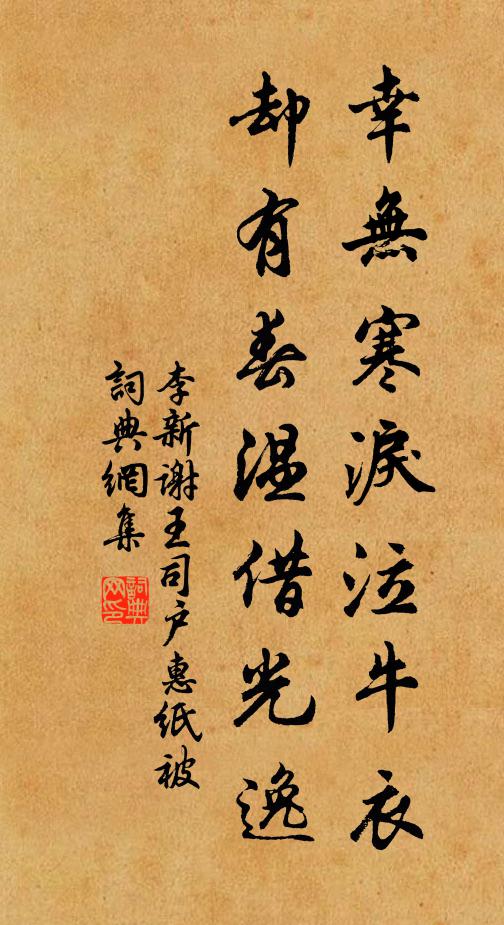 幸無寒淚泣牛衣
却有春温借光逸
李新謝王司户惠紙被
詞典網集
詞典網印